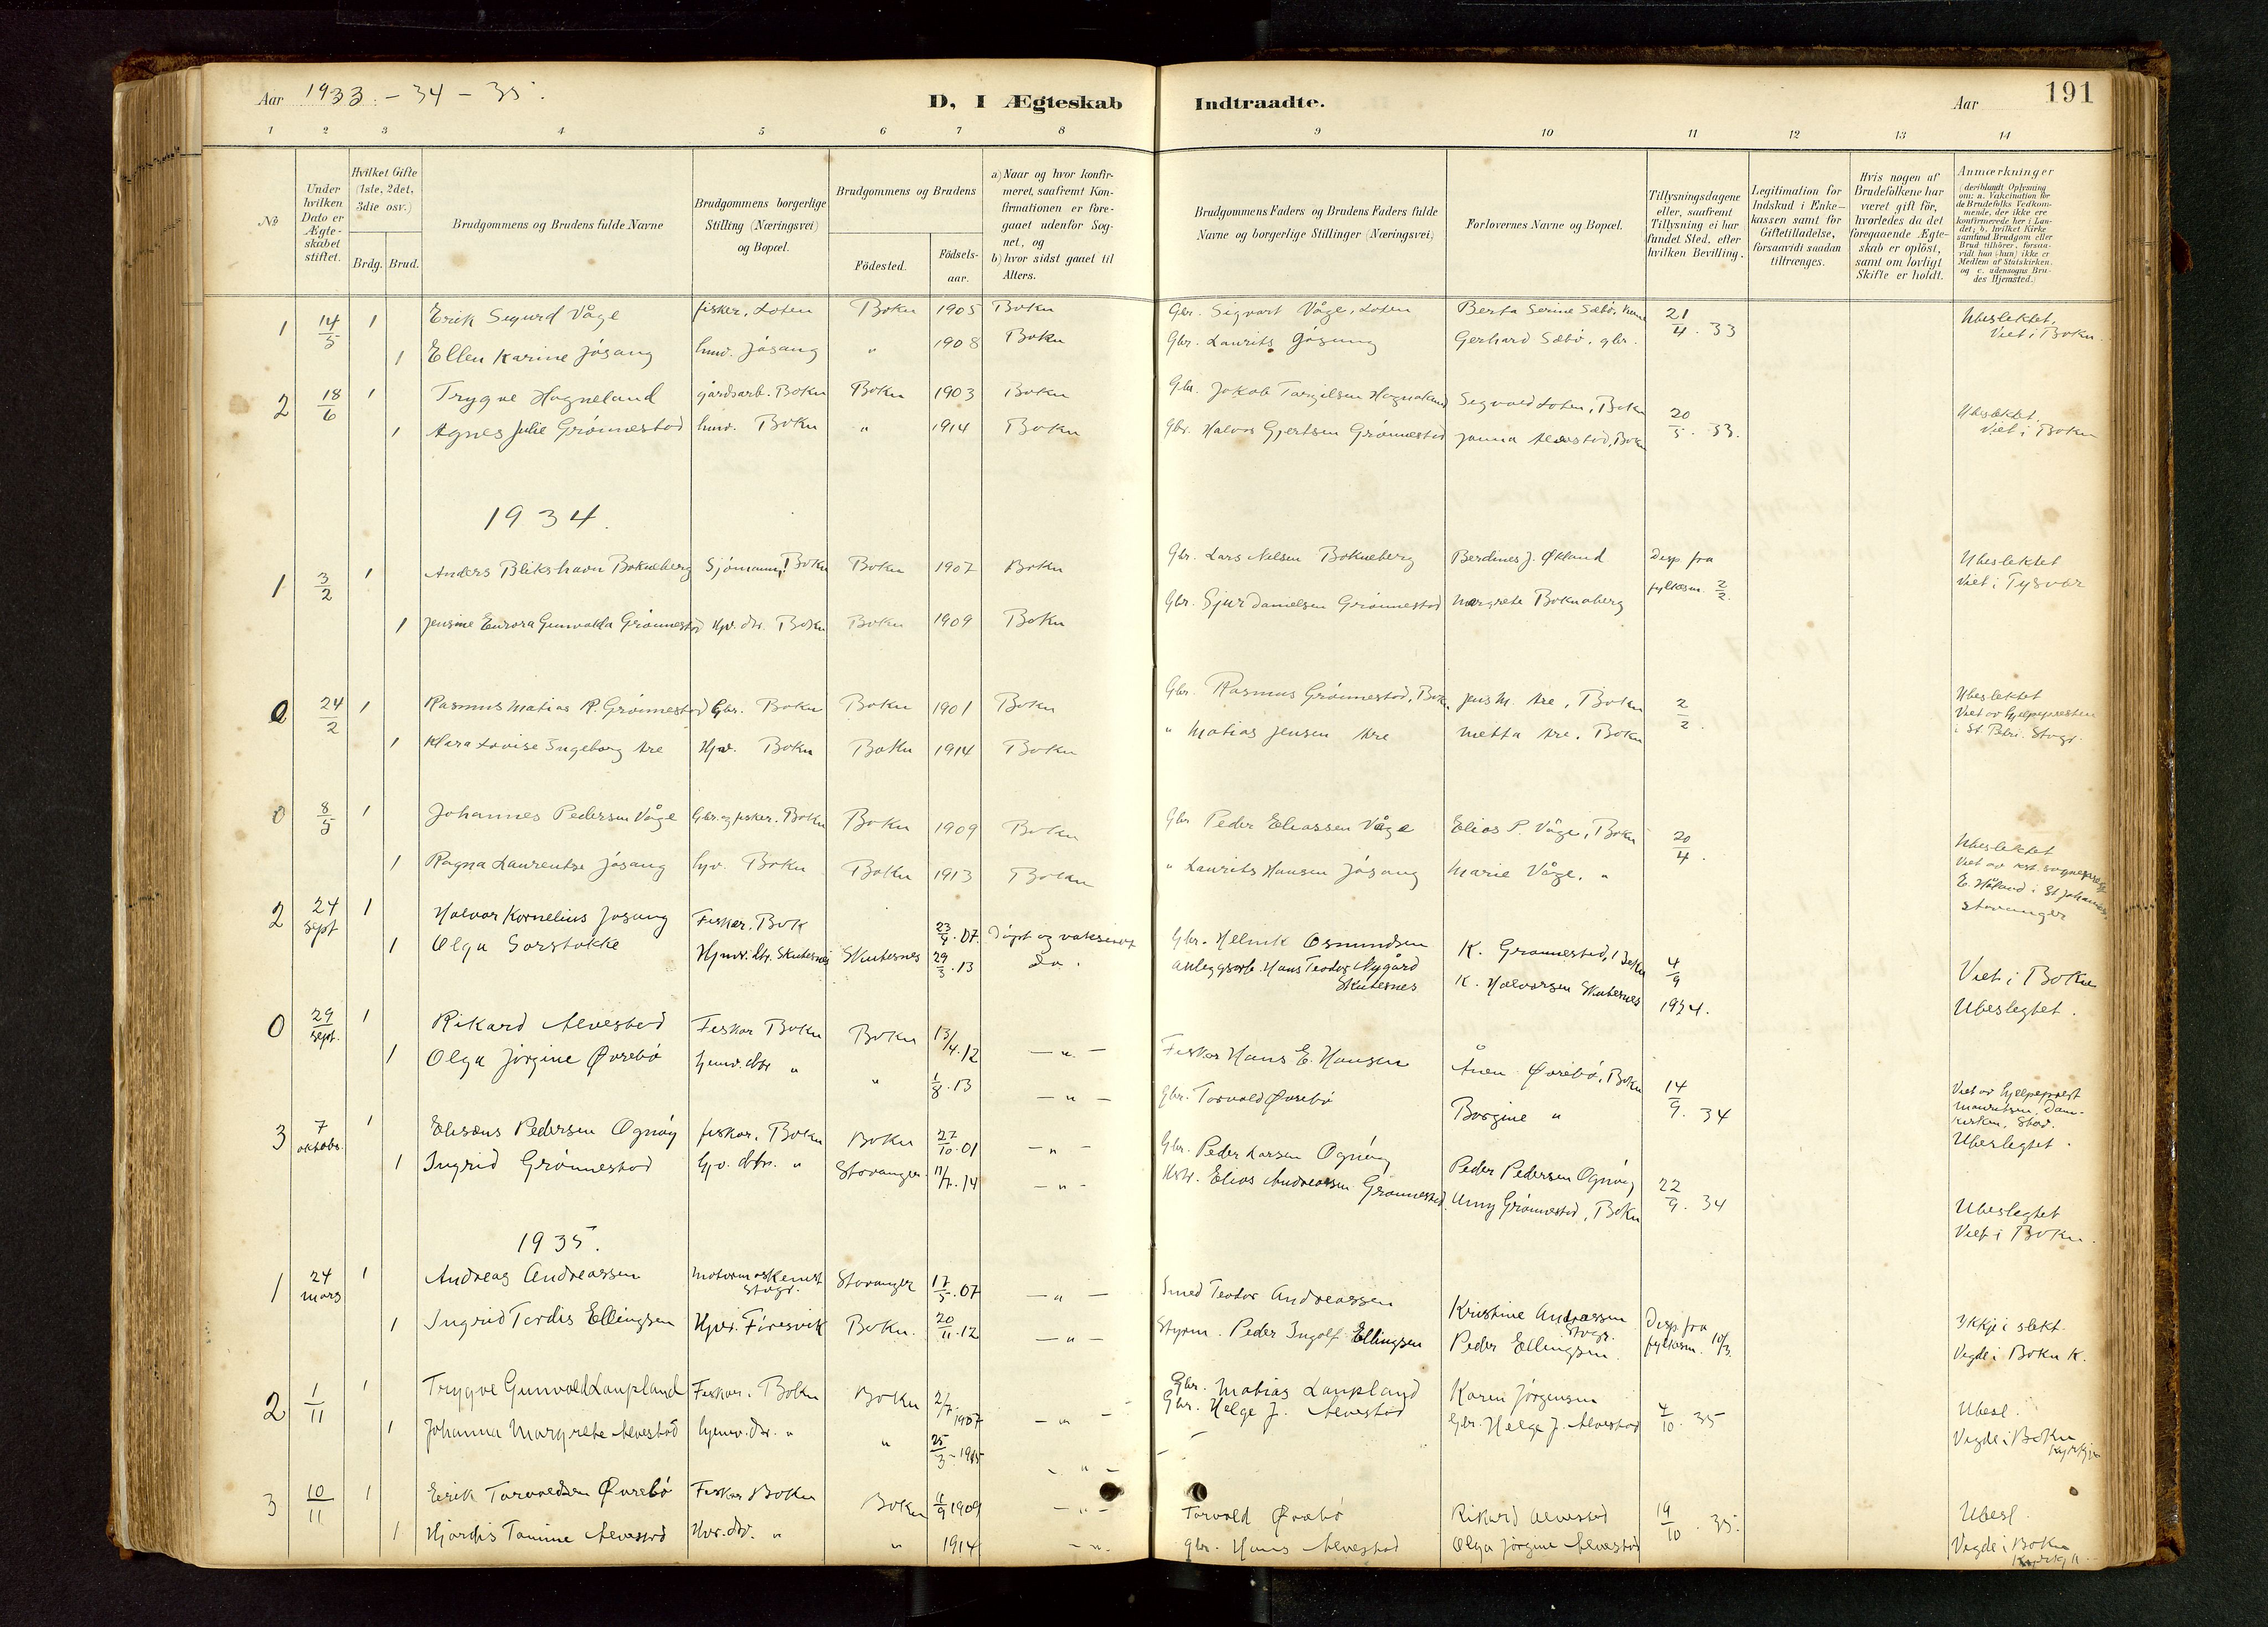 Aar 1933 - 34 - 35.
D, I Ægteskab Indtraadte.
Aar 191
1 2 3 4 5 6 7 8 9 10 11 12 13 14
№
Under hvilken Dato er Ægteskabet stiftet.
Hvilket Gifte (1ste, 2det, 3die osv.)
Brdg. Brud.
Brudgommens og Brudens fulde Navne
Brudgommens borgerlige Stilling (Næringsvei) og Bopæl.
Brudgommens og Brudens
Fødested. Fødselsaar.
a) Naar og hvor konfirmeret, saafremt Konfirmationen er foregaaet udenfor Sognet, og
b) hvor sidst gaaet til Alters.
Brudgommens Faders og Brudens Faders fulde Navne og borgerlige Stillinger (Næringsvei)
Forlovernes Navne og Bopæl.
Tillysningsdagene eller, saafremt Tillysning ei har fundet Sted, efter hvilken Bevilling.
Legitimation for Indskud i Enkekassen samt for Giftetilladelse, forsaavidt saadan tiltrænges.
Hvis nogen af Brudefolkene har været gift før, hvorledes da det foregaaende Ægteskab er opløst, samt om lovligt Skifte er holdt.
Anmærkninger (deriblandt Oplysning om: a. Vakcination for de Brudefolks Vedkommende, der ikke ere konfirmerede her i Landet; b. hvilket Kirkesamfund Brudgom eller Brud tilhører, forsaavidt han (hun) ikke er Medlem af Statskirken, og c. udensogns Brudes Hjemsted.)
1 14/5 1 Erik Sigurd Våge fisker, Loten Bokn 1905 Bokn Gbr. Sigvart Våge, Loten Berta Serine Sæbø, 21/4. 33 Ubeslektet,
1 Ellen Karine Jøsang husv. Jøsang " 1908 Bokn Gbr. Laurits Jøsang Gerhard Sæbø, gbr. Viet i Bokn.
2 18/6 1 Trygve Hogneland gårdsarb. Bokn Bokn 1903 Bokn Gbr. Jakob Torgilsen Hognaland Segvald Loten, Bokn 20/5. 33. Ubeslektet
1 Agnes Julie Grønnestad husv. Bokn " 1914 Bokn Gbr. Halvor Gjertsen Grønnestad Janna Alvestad, Bokn Viet i Bokn
1934.
1 3/2 1 Anders Blikshavn Bokneberg Sjømann, Bokn Bokn 1907 Bokn Gbr. Lars Nilsen Bokneberg Berdines J. Økland Disp. fra Ubeslektet
1 Jensine Eurora Gunvalda Grønnestad Hjv. dtr. Bokn Bokn 1909 Bokn Gbr. Sjur Danielsen Grønnestad Margrete Boknaberg fylkesm. 2/2. Viet i Tysvær
0 24/2 1 Rasmus Matias R. Grønnestad Gbr. Bokn Bokn 1901 Bokn Gbr. Rasmus Grønnestad, Bokn Jens M. Are, Bokn 2/2. Ubeslektet
1 Klara Lovise Ingeborg Are Hjv. Bokn Bokn 1914 Bokn " Matias Jensen Are Metta Are, Bokn Viet av hjelpepresten
i St. Petri. Stvgr.
0 8/5 1 Johannes Pedersen Våge Gbr. og fisker. Bokn Bokn 1909 Bokn Gbr Peder Eliassen Våge Elias P. Våge, Bokn 20/4. Ubeslektet
1 Ragna Laurentse Jøsang hjv. Bokn Bokn 1913 Bokn " Laurits Hansen Jøsang Marie Våge, " Viet av res. sogneprest
E. Håland i St. Johannes,
Stavanger
2 24 sept 1 Halvar Kornelius Jøsang Fisker, Bok 23/4. 07. Døpt og vaksinert Gbr. Helmik Osmundsen K. Grønnestad, Bokn 4/9 Viet i Bokn
1 Olga Sørstokke Hjmv. dtr. Skutesnes Skutesnes 29/3. 13 do. anleggsarb. Hans Teodor Nygård Skutesnes K. Halvorsen Skutesnes 1934. Ubeslegtet.
0 29 sept. 1 Rikard Alvestad Fisker Bokn Bokn 13/4. 12 — " — Fisker Hans E. Hansen Ånen Øvrebø, Bokn 14/9. 34 Viet av hjelpeprest
1 Olga Jørgine Øvrebø hjemv. dtr " " 1/8. 13 — " — Gbr. Torvald Øvrebø Borgine " Mauritsen, Domkirken, Stav.
Ubeslegtet.
3 7 oktobr. 1 Elisæus Pedersen Ognøy fisker, Bokn Bokn 27/10. 01 — " — Gbr. Peder Larsen Ognøy Peder Pedersen Ognøy 22/9. 34 Ubeslegtet
1 Ingrid Grønnestad hjv. dtr. " Stavanger 11/7. 14 — " — Elias Andreassen Grønnestad. Unny Grønnestad, Bokn Viet i Bokn.
1935.
1 24 mars 1 Andreas Andreassen motormaskenist Stvgr. Stavanger 17/5. 07 — " — Smed Teodor Andreassen Kristine Andreassen Stvgr. Disp. fra Ikkje i slekt.
1 Ingrid Tordis Ellingsen Hjv. Føresvik Bokn. 20/11. 12 — " — Styrm. Peder Ingolf Ellingsen Peder Ellingsen. fylkesm. 10/3. Vigde i Bokn K.
2 1/11 1 Trygve Gunvald Laupland Fisker. Bokn Bokn 2/7. 1907 — " — Gbr. Matias Laupland Karen Jørgensen 4/10. 35 Ubesl.
1 Johanna Margrete Alvestad hjemv. dtr. " " 25/3 - 1915 — " — Gbr. Helge J. Alvestad Gbr. Helge J. Alvestad Vigde i Bokn
3 10/11 1 Erik Torvaldsen Øvrebø Fisker Bokn Bokn 11/9 1909 — " — Torvald Øvrebø Rikard Alvestad 19/10. 35. Ubesl.
1 Hjørdis Tomine Alvestad Hv. dtr. " " 1914 — " — Gbr. Hans Alvestad Olga Jørgine Alvestad Vigde i Bokn